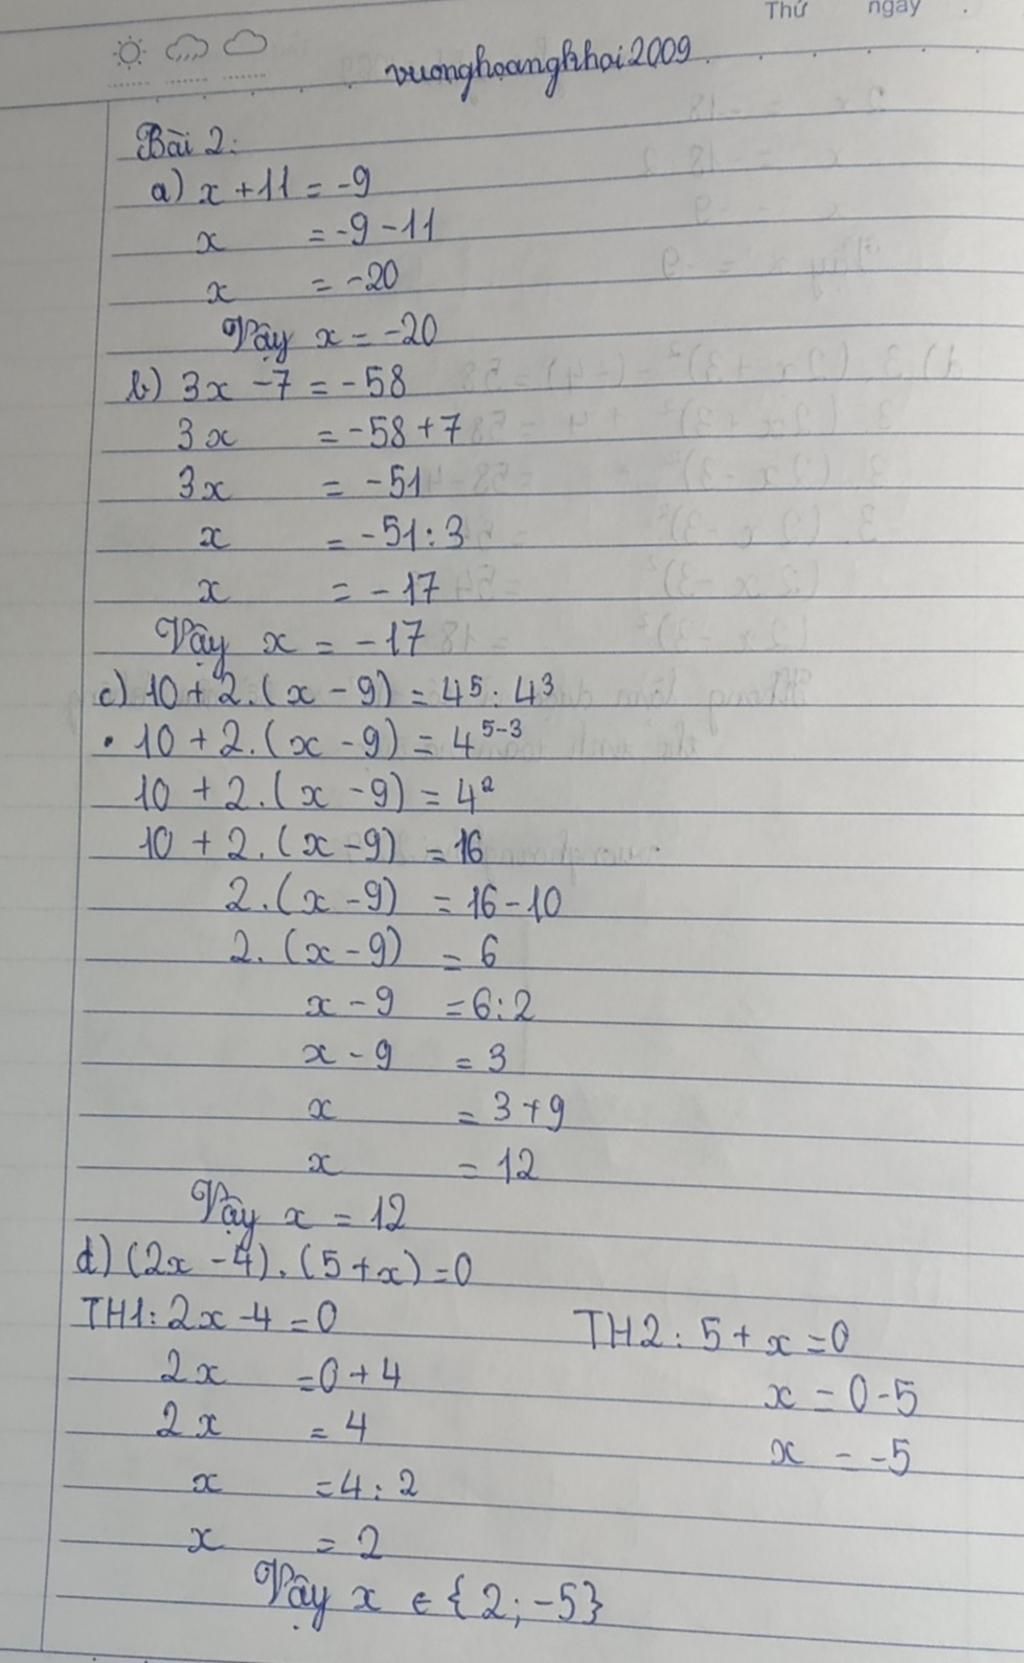 Thứ ngày
vuonghoangkhai2009
Bài 2:
a) x + 11 = -9
x = -9 - 11
x = -20
Vậy x = -20
b) 3x - 7 = -58
3x = -58 + 7
3x = -51
x = -51 : 3
x = -17
Vậy x = -17
c) 10 + 2.(x - 9) = 4⁵ : 4³
10 + 2.(x - 9) = 4⁵⁻³
10 + 2.(x - 9) = 4²
10 + 2.(x - 9) = 16
2.(x - 9) = 16 - 10
2.(x - 9) = 6
x - 9 = 6 : 2
x - 9 = 3
x = 3 + 9
x = 12
Vậy x = 12
d) (2x - 4).(5 + x) = 0
TH1: 2x - 4 = 0
2x = 0 + 4
2x = 4
x = 4 : 2
x = 2
TH2: 5 + x = 0
x = 0 - 5
x = -5
Vậy x ∈ {2; -5}